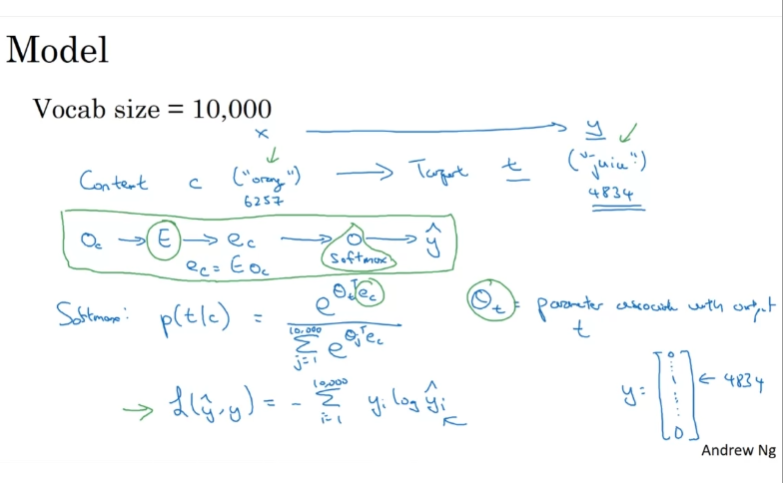 Model
Vocab size = 10,000
x → y ✓
Content c ("orange") → Target t ("juice")
6257 4834
O_c → E → e_c → O → ŷ
Softmax
e_c = E O_c
Softmax: p(t|c) = e^{θ_t^T e_c} / Σ_{j=1}^{10,000} e^{θ_j^T e_c} θ_t = parameter associated with output t
L(ŷ, y) = - Σ_{i=1}^{10,000} y_i log ŷ_i
y = [0 ⋮ 1 ⋮ 0] ← 4834
Andrew Ng